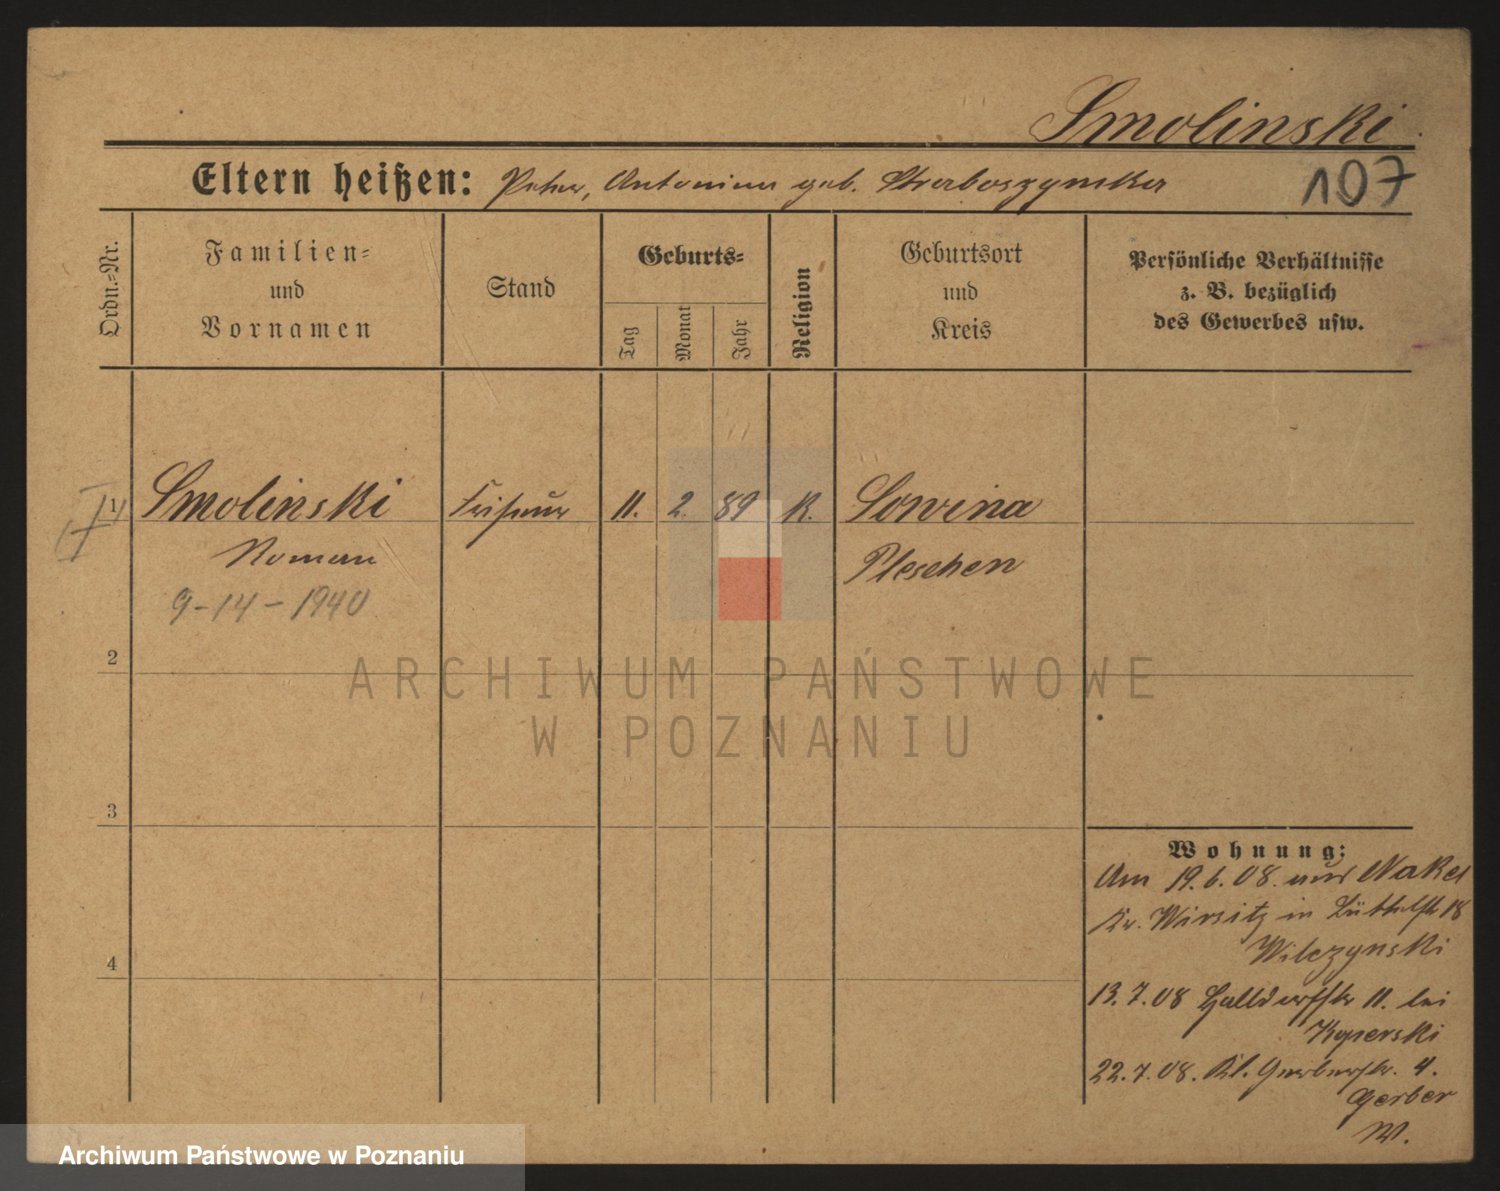 Smolinski
107
Eltern heißen: Peter, Antonina geb. Skraboszynska
Ordn.-Nr.
Familien-
und
Vornamen
Stand
Geburts-
Tag
Monat
Jahr
Religion
Geburtsort
und
Kreis
Persönliche Verhältnisse
z. B. bezüglich
des Gewerbes usw.
1 Smolinski Friseur 11. 2. 89 K. Sowina
Roman Pleschen
9-14-1940
2
3
4
Wohnung:
Am 19.6.08. aus Nakel
Kr. Wirsitz in 18
Wilczynski
13.7.08 Halldorffstr 11. bei
Koperski
22.7.08. Kl. Gerberstr. 4.
Gerber
W.
ARCHIWUM PAŃSTWOWE
W POZNANIU
Archiwum Państwowe w Poznaniu